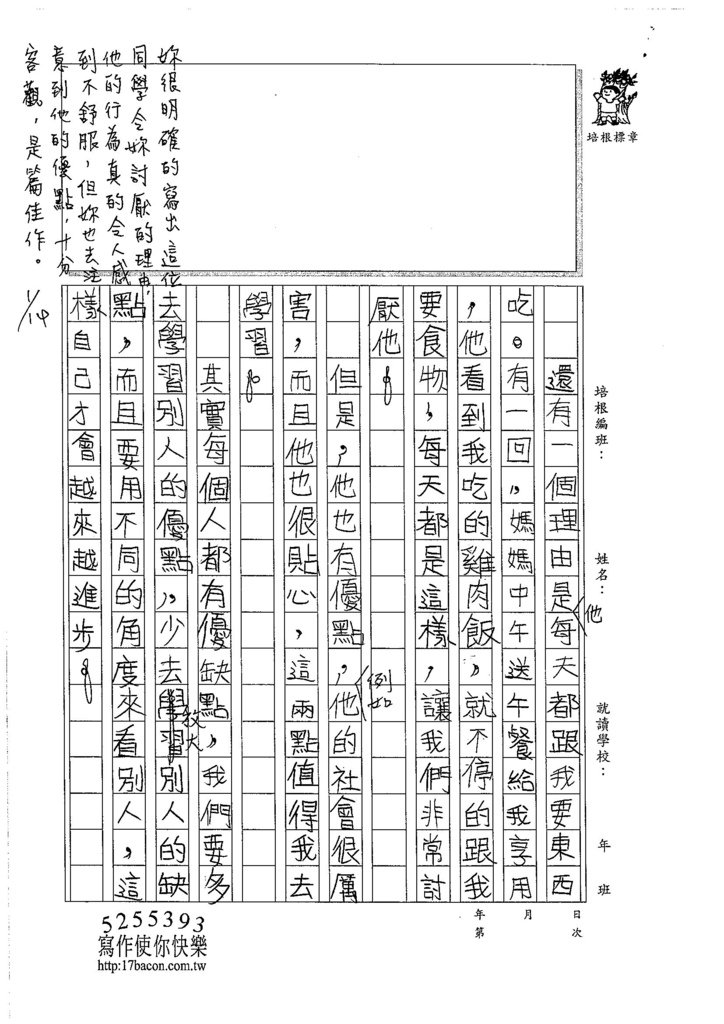 培根標章
培根編班：
姓名：
就讀學校：
年
班
還有一個理由是他每天都跟我要東西
吃。有一回，媽媽中午送午餐給我享用
，他看到我吃的雞肉飯，就不停的跟我
要食物，每天都是這樣，讓我們非常討
厭他。
但是，他也有優點，例如他的社會很厲
害，而且他也很貼心，這兩點值得我去
學習。
其實每個人都有優缺點，我們要多
去學習別人的優點，少去放大別人的缺
點，而且要用不同的角度來看別人，這
樣自己才會越來越進步。
妳很明確的寫出這位
同學令妳討厭的理由，
他的行為真的令人感
到不舒服，但妳也去注
意到他的優點，十分
客觀，是篇佳作。
1/14
年 月 日
第 次
5255393
寫作使你快樂
http:17bacon.com.tw